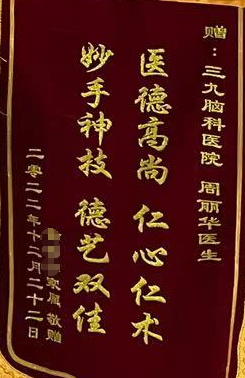 赠：三九脑科医院 周丽华医生
医德高尚 仁心仁术
妙手神技 德艺双佳
家属 敬赠
二零二二年十二月二十二日